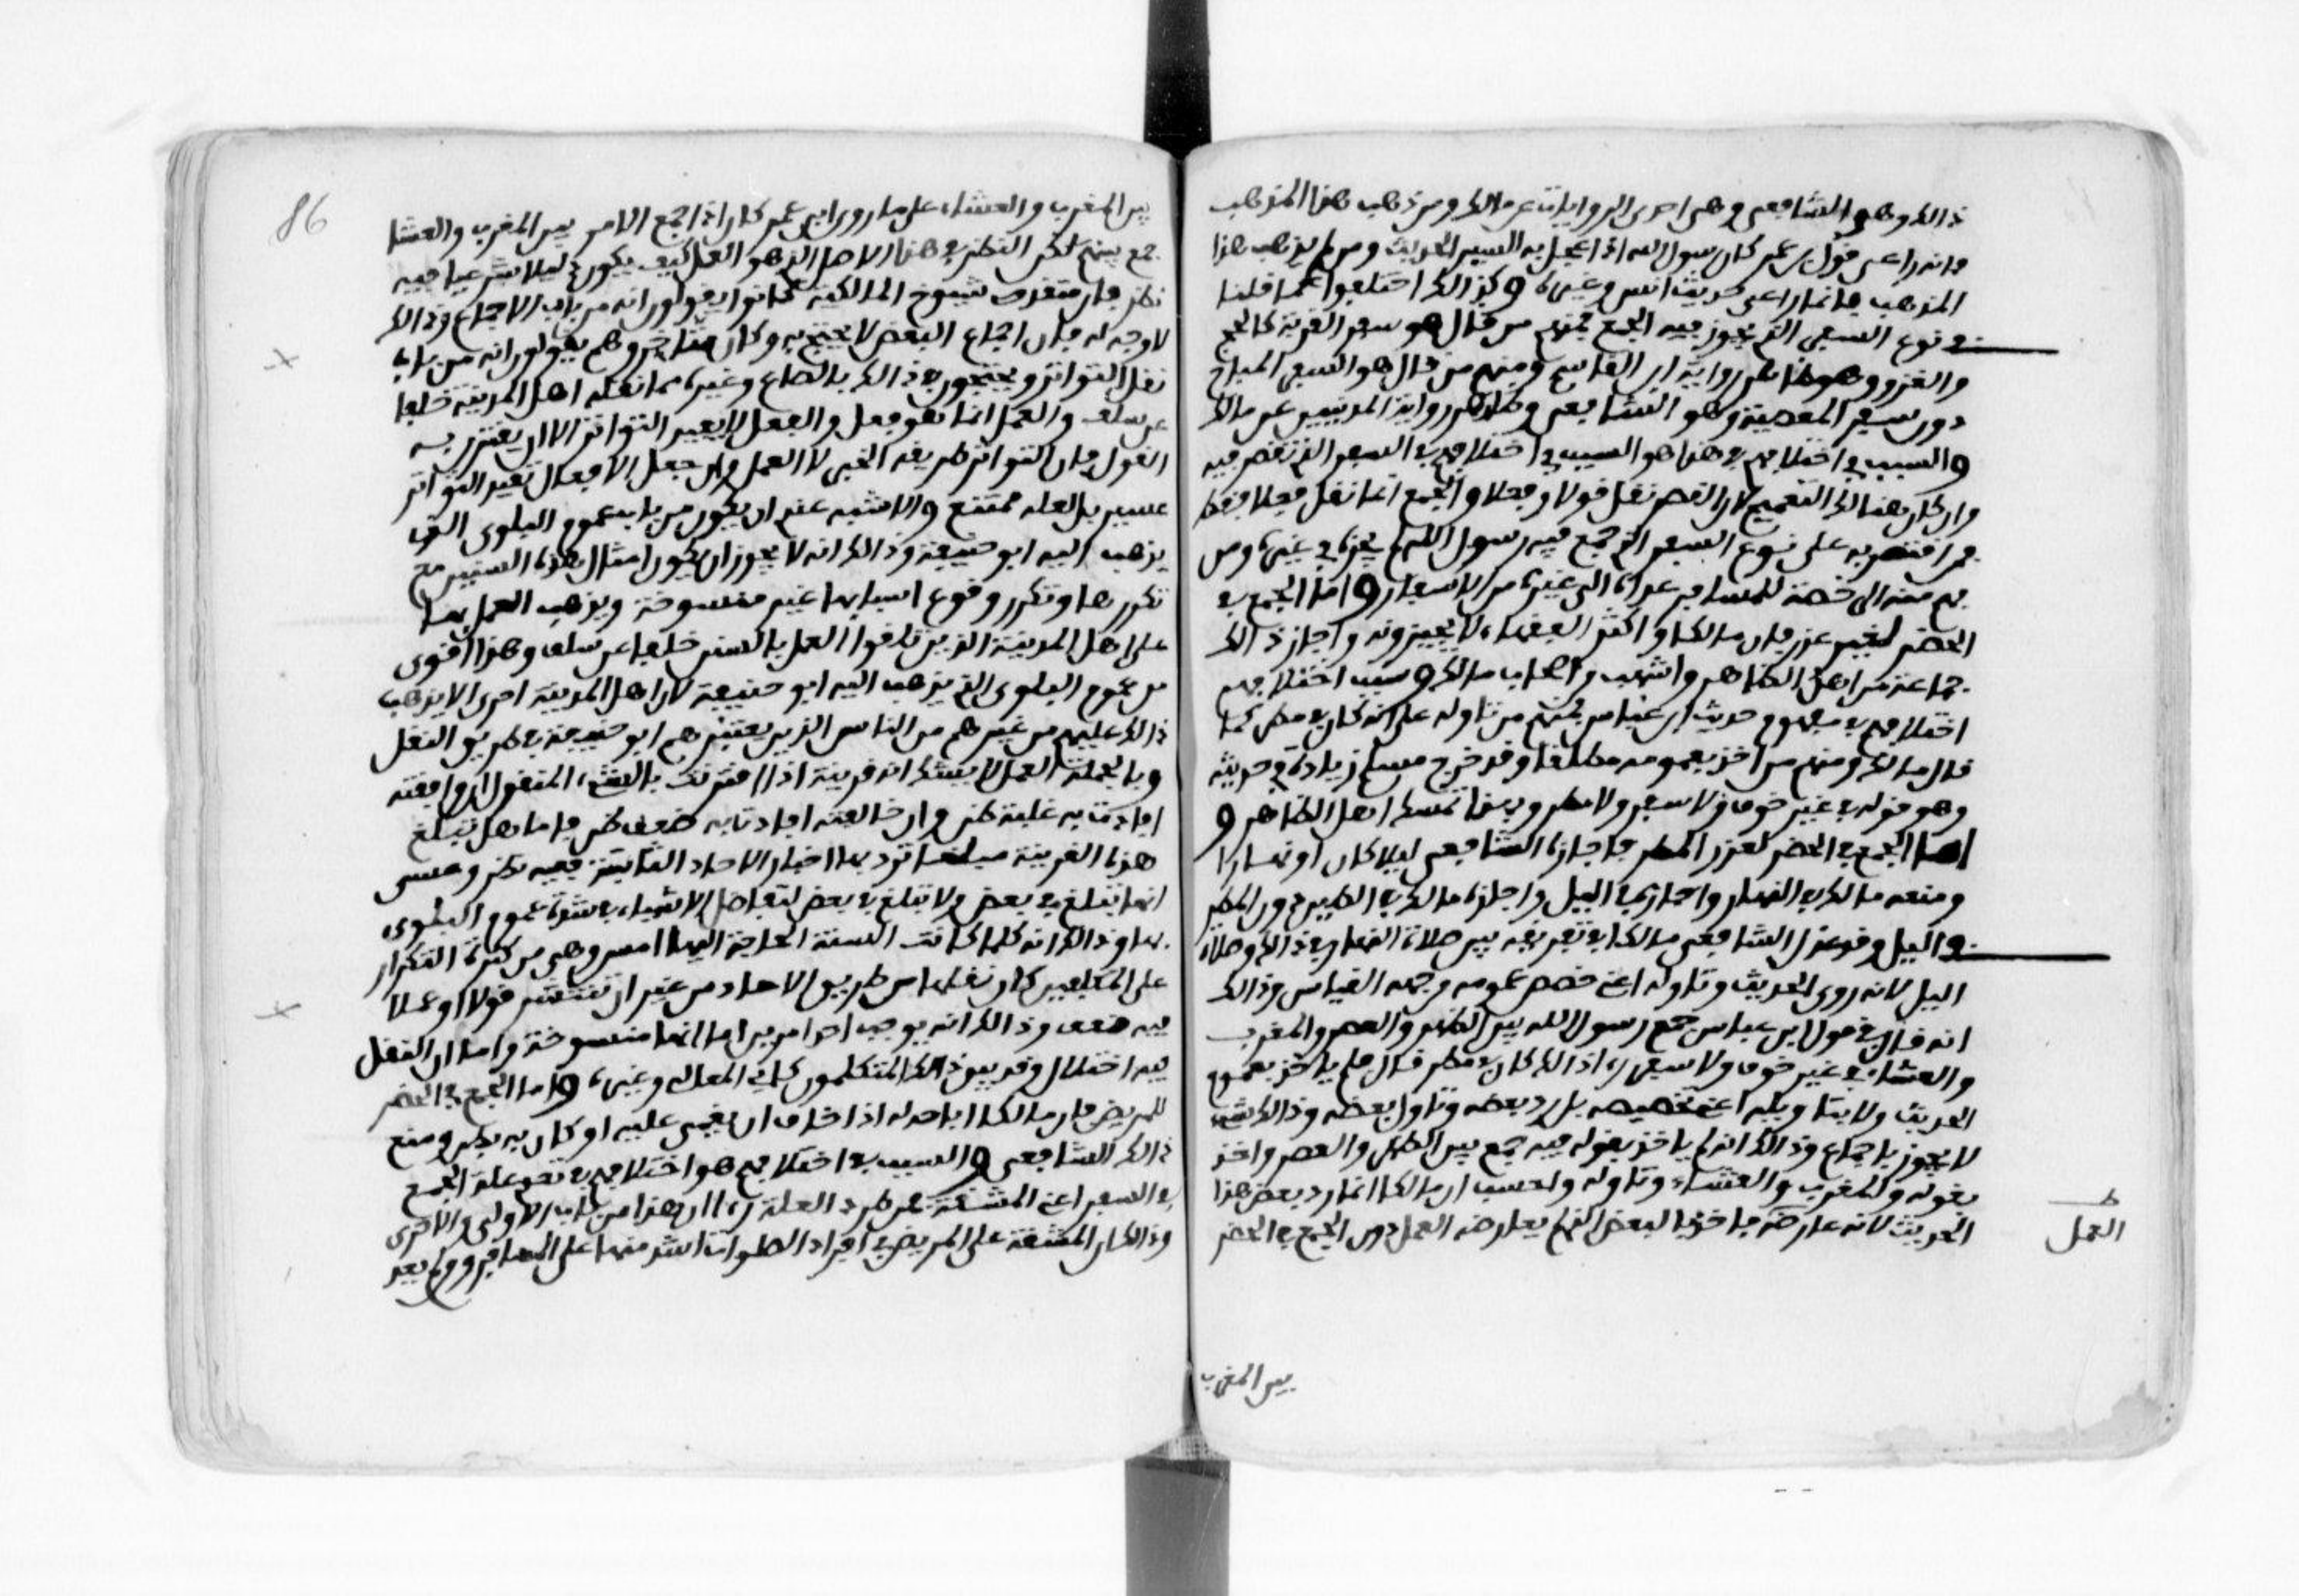 ذالك وهو الشافعي وهي احدى الروايات عن مالك ومن ذهب هذا المذهب
فانه راعى قول بن عمر كان رسول الله اذا عجل به السير الحديث ومن لم يذهب هذا
المذهب فانما راعى حديث انس وغيره وكذالك اختلفوا كما قلنا
في نوع السفر الذي يجوز فيه الجمع فمنهم من قال هو سفر القربة كالحج
والغزو وهو ظاهر رواية ابن القاسم ومنهم من قال هو السفر المباح
دون سفر المعصية وهو الشافعي وظاهر رواية المدنيين عن مالك
والسبب في اختلافهم في هذا هو السبب في اختلافهم في السفر الذي تقصر فيه
وان كان هنالك التعميم لان القصر نقل قولا وفعلا والجمع انما نقل فعلا فقط
فمن اقتصر به على نوع السفر الذي جمع فيه رسول الله لم يجزه في غيره ومن
فهم منه الرخصة للمسافر عداه الى غيره من الاسفار واما الجمع في
الحضر لغير عذر فان مالكا واكثر الفقهاء لا يجيزونه واجاز ذالك
جماعة من اهل الظاهر واشهب من اصحاب مالك وسبب اختلافهم
اختلافهم في مفهوم حديث ابن عباس فمنهم من تاوله على انه كان في مطر كما
قال مالك ومنهم من اخذ بعمومه مطلقا وقد خرج مسلم زيادة في حديثه
وهو قوله في غير خوف ولا سفر ولا مطر وبهذا تمسك اهل الظاهر و
اما الجمع في الحضر لعذر المطر فاجازه الشافعي ليلا كان او نهارا
ومنعه مالك في النهار واجازه في الليل واجازه مالك في الطين دون المطر
في الليل وقد عذل الشافعي مالكا في تفريقه بين صلاة النهار في ذالك وصلاة
الليل لانه روى الحديث وتاوله اعني خصص عمومه من جهة القياس وذالك
انه قال في قول ابن عباس جمع رسول الله بين الظهر والعصر والمغرب
والعشاء في غير خوف ولا سفر ارى ذالك كان في مطر قال فلم ياخذ بعموم
الحديث ولا بتاويله اعني تخصيصه بل رد بعضه وتاول بعضه وذالك شيء
لا يجوز باجماع وذالك انه لم ياخذ بقوله فيه جمع بين الظهر والعصر واخذ
بقوله والمغرب والعشاء وتاوله واحسب ان مالكا انما رد بعض هذا
الحديث لانه عارضه فاخذ بالبعض الذي لم يعارضه العمل دون الجمع في الحضر
ط
العمل
بين المغرب
86
بين المغرب والعشاء على ما روى ابن عمر كان اذا جمع الامر بين المغرب والعشا
جمع بينهم لكن النظر في هذا الاصل الذي هو العمل كيف يكون دليلا شرعيا فيه
نظر فان متقدمي شيوخ المالكية كانوا يقولون انه من باب الاجماع وذالك
لا وجه له فان اجماع البعض لا يحتج به وكان متاخروهم يقولون انه من باب
نقل التواتر ويحتجون في ذالك بالصاع وغيره مما نقله اهل المدينة خلفا
عن سلف والعمل انما هو فعل والفعل لا يفيد التواتر الا ان يقترن به
القول فان التواتر طريقه الخبر لا العمل وان جعل الافعال تفيد التواتر
عسير بل لعله ممتنع والاشبه عندي ان يكون من باب عموم البلوى الذي
يذهب اليه ابو حنيفة وذالك انه لا يجوز ان يكون امثال هذه السنن مع
تكررها وتكرر وقوع اسبابها غير منسوخة ويذهب العمل بها
على اهل المدينة الذين تلقوا العمل بالسنن خلفا عن سلف وهذا اقوى
من عموم البلوى الذي يذهب اليه ابو حنيفة لان اهل المدينة احرى الا يذهب
ذالك عليهم من غيرهم من الناس الذين يعتبرهم ابو حنيفة في طريق النقل
وبالجملة العمل لا يشك انه قرينة اذا اقترنت بالشيء المنقول ان وافقته
افادت به غلبة ظن وان خالفته افادت به ضعف ظن فاما هل تبلغ
هذه القرينة مبلغا ترد بها اخبار الاحاد الثابتة ففيه نظر وعسى
انها تبلغ في بعض ولا تبلغ في بعض لتفاضل الاشياء في شدة عموم البلوى
بها وذالك انه كلما كانت السنة الحاجة اليها امس وهي من كثرة التكرار
على المكلفين كان نقلها من طريق الاحاد من غير ان تنتشر قولا او عملا
فيه ضعف وذالك انه يوجب احد امرين اما انها منسوخة واما ان النقل
فيه اختلال وقد بين ذالك المتكلمون كابي المعالي وغيره واما الجمع في الحضر
للمريض فان مالكا اباحه له اذا خاف ان يغمى عليه او كان به بطن ومنع
ذالك الشافعي والسبب في اختلافهم هو اختلافهم في تعدي علة الجمع
في السفر اعني المشقة فمن طرد العلة راى ان هذا من باب الاولى والاحرى
وذالك ان المشقة على المريض في افراد الصلوات اشد منها على المسافر ومن لم يعد